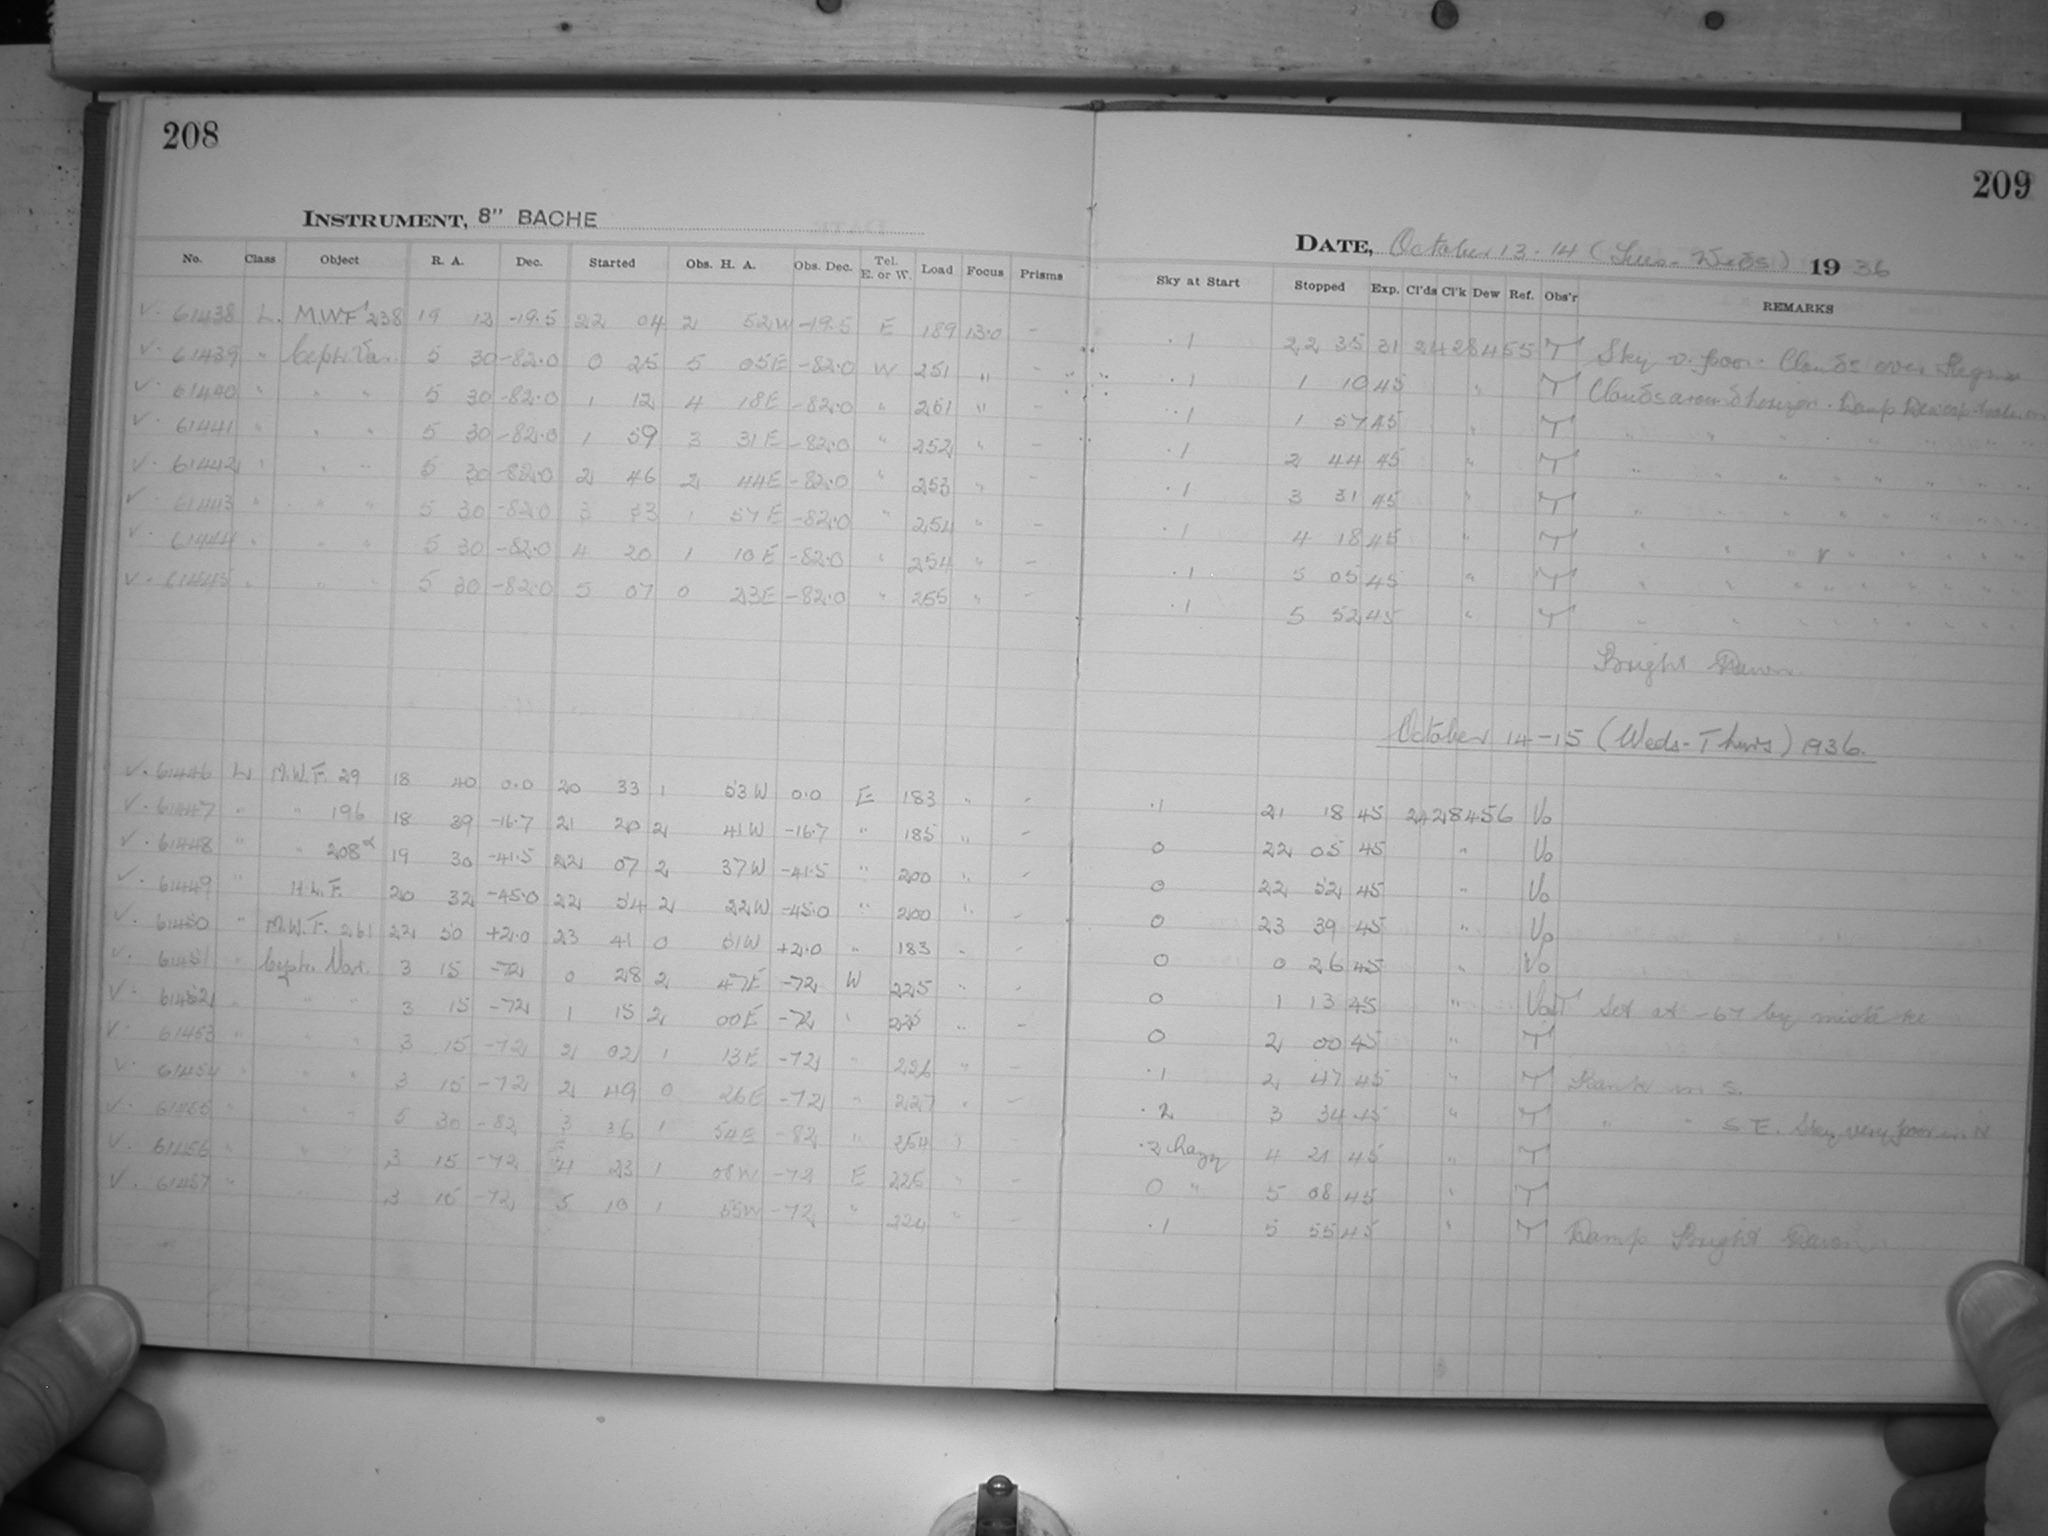 208
INSTRUMENT, 8" BACHE
No. Class Object R. A. Dec. Started Obs. H. A. Obs. Dec. Tel. E. or W. Load Focus Prisms
V. 61438 L. M.W.F 238 19 12 -19.5 22 04 2 52W -19.5 E 189 13.0 -
V. 61439 " Ceph. Var. 5 30 -82.0 0 25 5 05E -82.0 W 251 " -
V. 61440 " " " 5 30 -82.0 1 12 4 18E -82.0 " 251 " -
V. 61441 " " " 5 30 -82.0 1 59 3 31E -82.0 " 252 " -
V. 61442 " " " 5 30 -82.0 2 46 2 44E -82.0 " 253 " -
V. 61443 " " " 5 30 -82.0 3 33 1 57E -82.0 " 254 " -
V. 61444 " " " 5 30 -82.0 4 20 1 10E -82.0 " 254 " -
V. 61445 " " " 5 30 -82.0 5 07 0 23E -82.0 " 255 " -
V. 61446 L M.W.F. 29 18 40 0.0 20 33 1 53W 0.0 E 183 " -
V. 61447 " " 196 18 39 -16.7 21 20 2 41W -16.7 " 185 " -
V. 61448 " " 208α 19 30 -41.5 22 07 2 37W -41.5 " 200 " -
V. 61449 " H.L.F. 20 32 -45.0 22 54 2 22W -45.0 " 200 " -
V. 61450 " M.W.F. 261 22 50 +2.0 23 41 0 51W +2.0 " 183 " -
V. 61451 " Ceph. Var. 3 15 -72 0 28 2 47E -72 W 225 " -
V. 61452 " " " 3 15 -72 1 15 2 00E -72 " 225 " -
V. 61453 " " " 3 15 -72 2 02 1 13E -72 " 226 " -
V. 61454 " " " 3 15 -72 2 49 0 26E -72 " 227 " -
V. 61455 " " " 5 30 -82 3 36 1 54E -82 " 254 " -
V. 61456 " " " 3 15 -72 4 23 1 08W -72 E 225 " -
V. 61457 " 3 15 -72 5 10 1 55W -72 " 224 " -
209
DATE, October 13-14 (Tues-Weds) 1936
Sky at Start Stopped Exp. Cl'ds Cl'k Dew Ref. Obs'r REMARKS
.1 22 35 31 2428455 T Sky v. poor. Clouds over
.1 1 10 45 " T Clouds around horizon. Damp
.1 1 57 45 " T " " " " " "
.1 2 44 45 " T " " " " " "
.1 3 31 45 " T " " " " " "
.1 4 18 45 " T " " " " " "
.1 5 05 45 " T " " " " " "
.1 5 52 45 " T " " " " " "
Bright Dawn
October 14-15 (Weds-Thurs) 1936.
.1 21 18 45 2428456 Vo
0 22 05 45 " Vo
0 22 52 45 " Vo
0 23 39 45 " Vo
0 0 26 45 " Vo
0 1 13 45 " Vo&T Set at -67 by mistake
0 2 00 45 " T
.1 2 47 45 " T Bank in S.
.2 3 34 45 " T " " S E. Sky very poor in N
.2 hazy 4 21 45 " T
0 " 5 08 45 " T
.1 5 55 45 " T Damp Bright Dawn